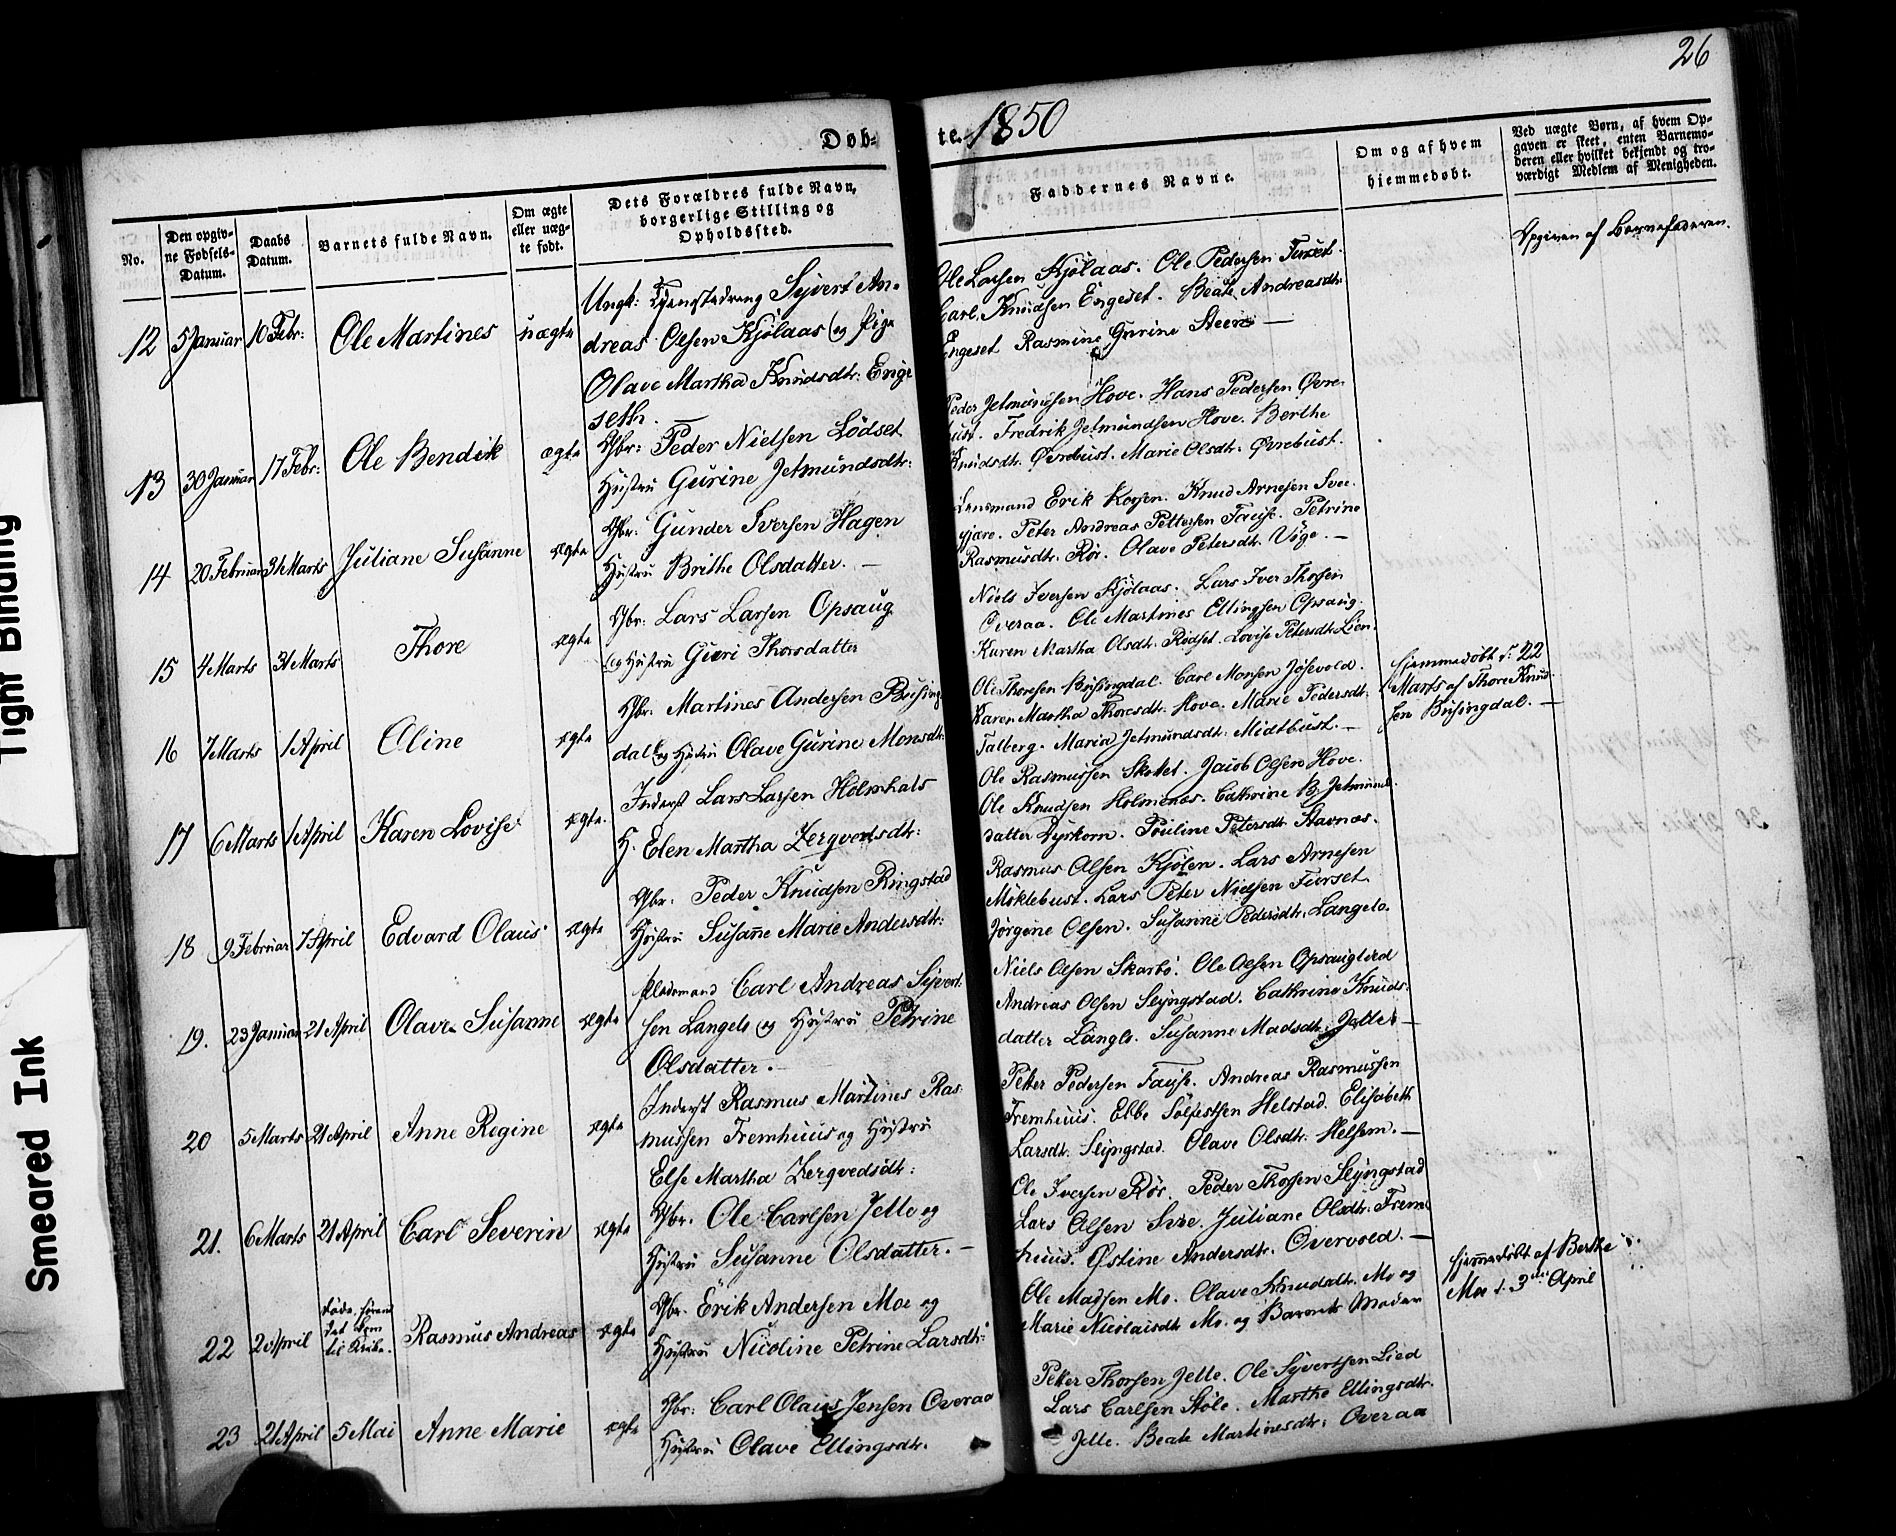 26
Døb=
te. 1850
No.
Den opgiv-
ne Fødsels-
Datum.
Daabs
Datum.
Barnets fulde Navn.
Om ægte
eller uæg-
te født.
Dets Forældres fulde Navn,
borgerlige Stilling og
Opholdssted.
Faddernes Navne.
Om og af hvem
hjemmedøbt.
Ved uægte Børn, af hvem Op-
gaven er skeet, enten Barnemo-
deren eller hvilket bekjendt og tro-
værdigt Medlem af Menigheden.
12 5 Januar 10 Febr: Ole Martines uægte
Ungk: Tjenestedreng Syvert An-
dreas Olsen Kjølaas og Pige
Olave Martha Knudsdtr: Enge
seth.
Ole Larsen Kjølaas. Ole Pedersen Furset.
Carl Knudsen Engeset. Beate Andreasdtr.
Engeset Rasmine Gurine Steen —
Opgiven af Barnefaderen.
13 30 Januar 17 Febr: Ole Bendik ægte
Gbr: Peder Nielsen Lødset
Hustru Gurine Jetmundsdtr:
Peder Jetmundsen Hove. Hans Pedersen Øvre-
bust. Fredrik Jetmundsen Hove. Berthe
Knudsdtr. Øvrebust. Marie Olsdtr. Øvrebust.
14 20 Februar 31 Marts Juliane Susanne ægte
Gbr: Gunder Iversen Hagen
Hustru Brithe Olsdatter. —
Lensmand Erik Korsen. Knud Arnesen Svee
Peter Andreas Pettersen Fause. Petrine
Rasmusdtr. Rør. Olave Petersdtr. Våge. —
15 4 Marts 31 Marts Thore ægte
Gbr. Lars Larsen Opsaug
og Hustru Guri Thorsdatter
Niels Iversen Kjølaas. Lars Iver Thorsen
Overaa. Ole Martines Ellingsen Opsaug.
Karen Martha Olsdtr. Rødset. Lovise Petersdtr. Lien.
16 7 Marts 1 April Oline ægte
Gbr. Martines Andersen Brusing-
dal og Hustru Olave Gurine Monsdtr:
Ole Thoresen Brusingdal. Carl Monsen Jøsevold.
Karen Martha Thoresdtr. Hove. Marie Pedersdtr.
Talberg. Maria Jetmundsdtr. Midtbust. —
Hjemmedøbt d: 22
Marts af Thore Knud-
sen Brusingdal. —
17 6 Marts 1 April Karen Lovise ægte.
Inderst Lars Larsen Holmhals
H. Elen Martha Zergvedsdtr:
Ole Rasmussen Skottet. Jacob Olsen Hove.
Ole Knudsen Holmenæs. Cathrine B. Jetmunds
datter Dyrkorn. Pouline Petersdtr Stavnæs.
18 9 Februar 7 April Edvard Olaus ægte
Gbr. Peder Knudsen Ringstad
Hustru Susanne Marie Andersdtr:
Rasmus Olsen Kjølen. Lars Arnesen
Møklebust. Lars Peter Nielsen Furset
Jørgine Olsen. Susanne Pedersdtr. Langelo.
19. 23 Januar 21 April Olave Susanne ægte
Pladsmand Carl Andreas Syvert-
sen Langelo og Hustru Petrine
Olsdatter. —
Niels Olsen Skarbø. Ole Olsen Opsauglied
Andreas Olsen Slyngstad. Cathrine Knuds-
datter Langlo. Susanne Madsdtr. Jelle. —
20 5 Marts 21 April Anne Regine ægte
Inderst Rasmus Martines Ras-
mussen Fremhuus og Hustru
Else Martha Zergvedsdtr:
Petter Pedersen Fause. Andreas Rasmussen
Fremhuus. Ebbe Solfestsen Helstad. Elisabeth
Larsdtr. Slyngstad. Olave Olsdtr. Helsem. —
21. 6 Marts 21 April Carl Severin ægte
Gbr. Ole Carlsen Jelle og
Hustru Susanne Olsdatter. —
Ole Iversen Rør. Peder Thorsen Slyngstad
Lars Olsen Svee. Juliane Olsdtr. Frem
huus. Østine Andersdtr. Overvold. —
22 2 April Døde førend
det kom
til Kirke. Rasmus Andreas ægte
Gbr. Erik Andersen Moe og
Hustru Nicoline Petrine Larsdtr:
Ole Madsen Mo. Olave Knudsdtr. Mo og
Marie Nicolaisdtr Mo. og Barnets Moder
Hjemmedøbt af Berthe
Moe d. 3die April
23 21 April 5 Mai Anne Marie ægte
Gbr: Carl Olaus Jensen Overaa
Hustru Olave Ellingsdtr.
Petter Thorsen Jelle. Ole Syvertsen Lied
Lars Carlsen Støle. Marthe Ellingsdtr.
Jelle. Beate Martinesdtr: Overaa
Tight Binding
Smeared Ink